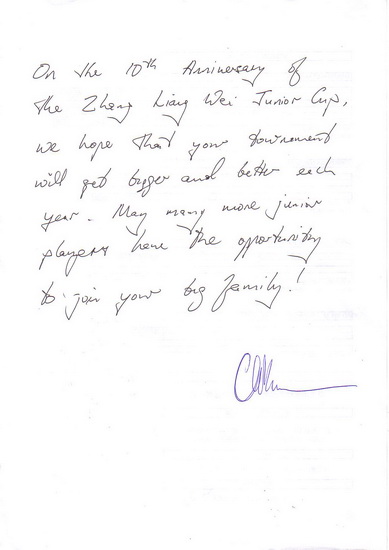 On the 10th Anniversary of
the Zhang Liang Wei Junior Cup,
we hope that your tournament
will get bigger and better each
year. May many more junior
players have the opportunity
to join your big family!